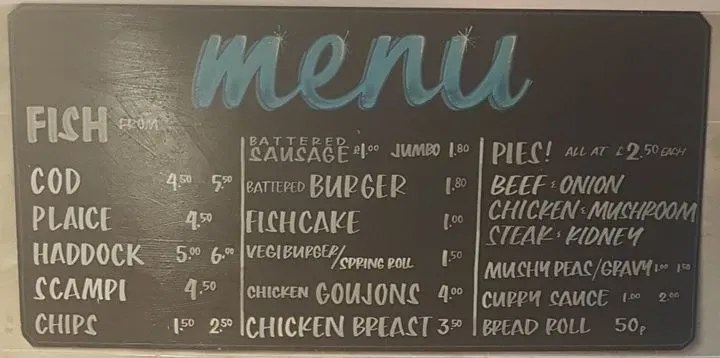 menu
FISH FROM
COD 4.50 5.50
PLAICE 4.50
HADDOCK 5.00 6.00
SCAMPI 4.50
CHIPS 1.50 2.50
BATTERED
SAUSAGE £1.00 JUMBO 1.80
BATTERED BURGER 1.80
FISHCAKE 1.00
VEGIBURGER/SPRING ROLL 1.50
CHICKEN GOUJONS 4.00
CHICKEN BREAST 3.50
PIES! ALL AT £2.50 EACH
BEEF & ONION
CHICKEN & MUSHROOM
STEAK & KIDNEY
MUSHY PEAS/GRAVY 1.00 1.50
CURRY SAUCE 1.00 2.00
BREAD ROLL 50p